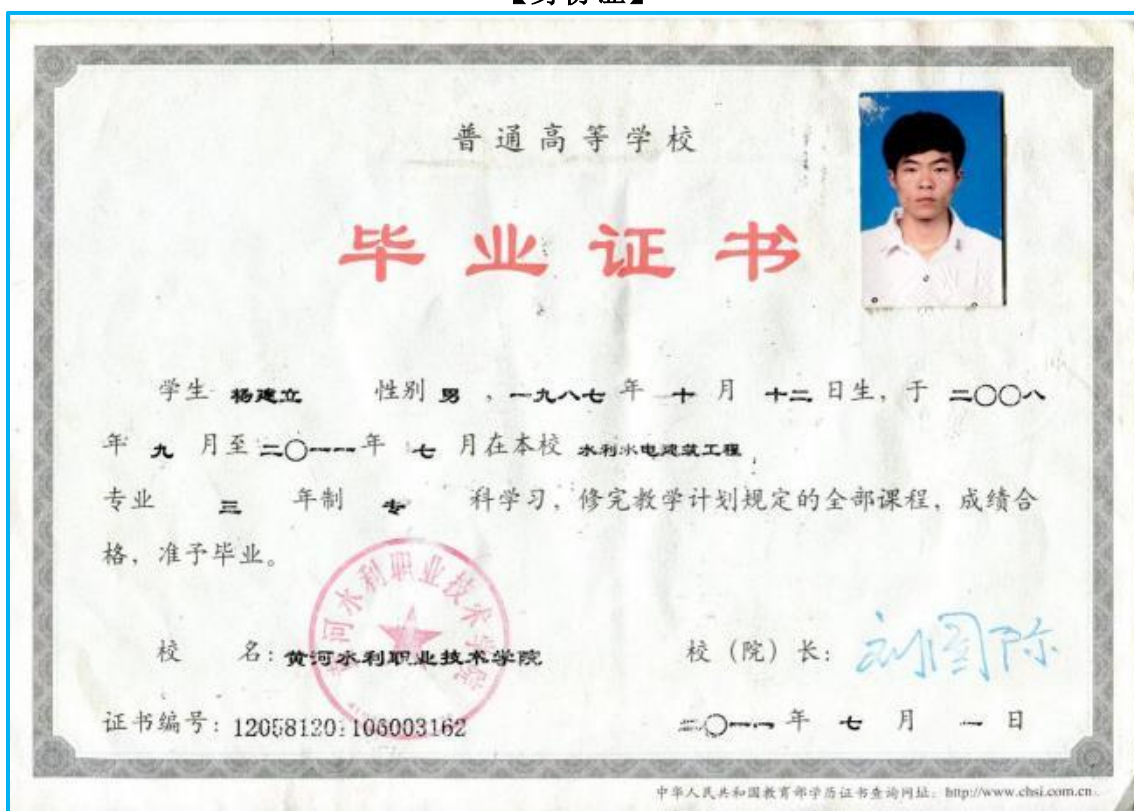 【身份证】
普通高等学校
毕业证书
学生 杨建立 性别 男 ，一九八七 年 十 月 十二 日生，于 二〇〇八
年 九 月至 二〇一一 年 七 月在本校 水利水电建筑工程
专业 三 年制 专 科学习，修完教学计划规定的全部课程，成绩合
格，准予毕业。
黄河水利职业技术学院
校 名：黄河水利职业技术学院 校（院）长：刘国际
证书编号：120581201106003162 二〇一一 年 七 月 一 日
中华人民共和国教育部学历证书查询网址：http://www.chsi.com.cn